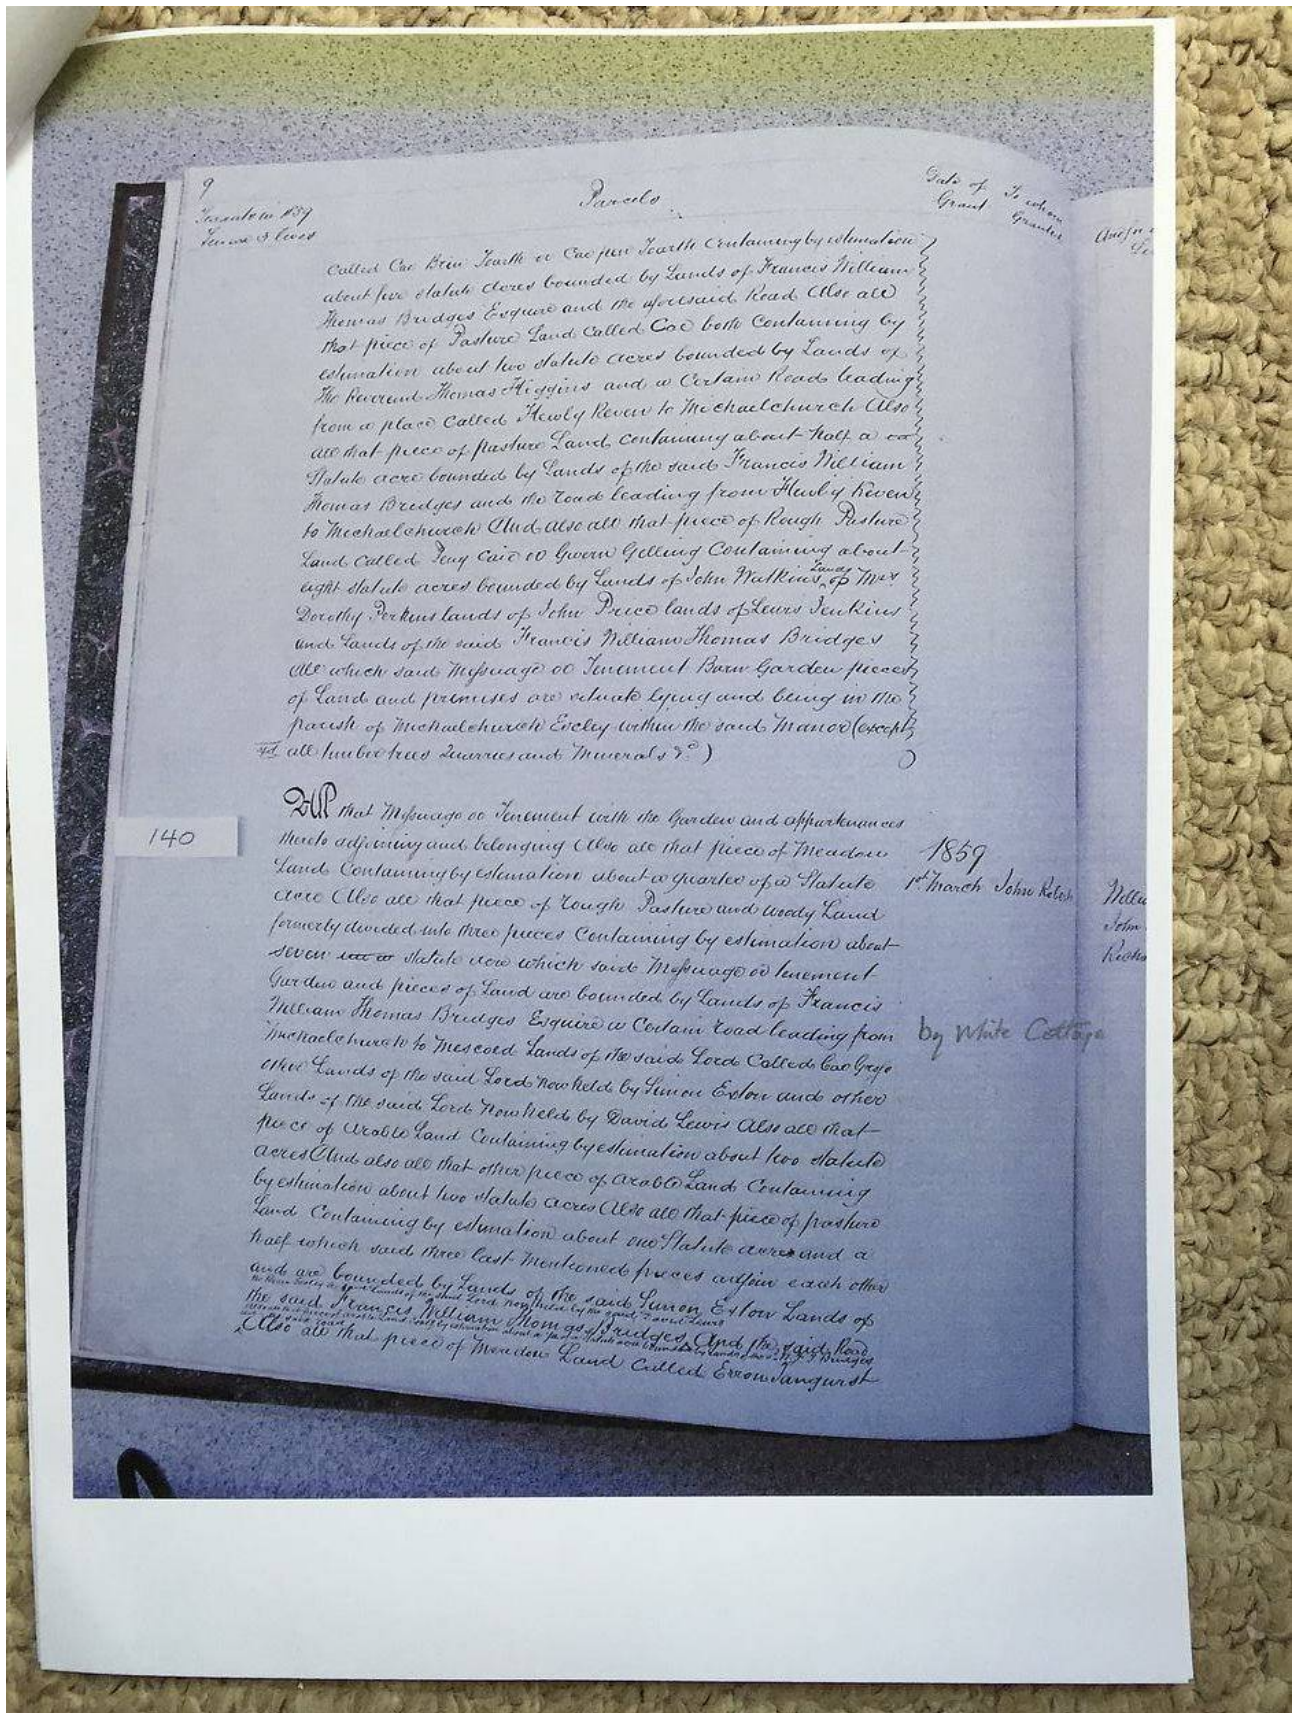 9
Parcels
Date of Grant
To whom Granted
in 1859
called Cae Bren Toarth or Cae pen Toarth Containing by estimation
about five statute acres bounded by Lands of Francis William
Thomas Bridges Esquire and the aforesaid Road Also all
that piece of Pasture Land Called Cae both Containing by
estimation about two statute acres bounded by Lands of
the Reverend Thomas Higgins and a Certain Road leading
from a place Called Newly Reven to Michaelchurch Also
all that piece of pasture Land Containing about half a
Statute acre bounded by Lands of the said Francis William
Thomas Bridges and the road leading from Reven
to Michaelchurch And also all that piece of Rough Pasture
Land Called or Gwern Gelling Containing about
eight statute acres bounded by Lands of John Watkins Lands of Mrs
Dorothy Perkins lands of John Price lands of Lewis Jenkins
and Lands of the said Francis William Thomas Bridges
All which said Messuage or Tenement Barn Garden pieces
of Land and premises are situate lying and being in the
parish of Michaelchurch Escley within the said Manor (except
all timber trees Quarries and Minerals &c)
140
All that Messuage or Tenement with the Garden and appurtenances
thereto adjoining and belonging Also all that piece of Meadow
Land Containing by estimation about a quarter of a Statute
acre Also all that piece of rough Pasture and woody Land
formerly divided into three pieces Containing by estimation about
seven statute acre which said Messuage or tenement
Garden and pieces of Land are bounded by Lands of Francis
William Thomas Bridges Esquire a Certain road leading from
Michaelchurch to Mescoed Lands of the said Lord Called Cae
other Lands of the said Lord now held by Simon Exton and other
Lands of the said Lord now held by David Lewis Also all that
piece of arable Land Containing by estimation about two statute
acres And also all that other piece of arable Land Containing
by estimation about two statute acres Also all that piece of pasture
Land Containing by estimation about one Statute acre and a
half which said three last mentioned pieces adjoin each other
and are bounded by Lands of the said Simon Exton Lands of
Lands of the said Lord now held by the said David Lewis
the said Francis William Thomas Bridges And the said Road
Also all that piece of Meadow Land Called
1859
1st March John Roberts
by White Cottage
John